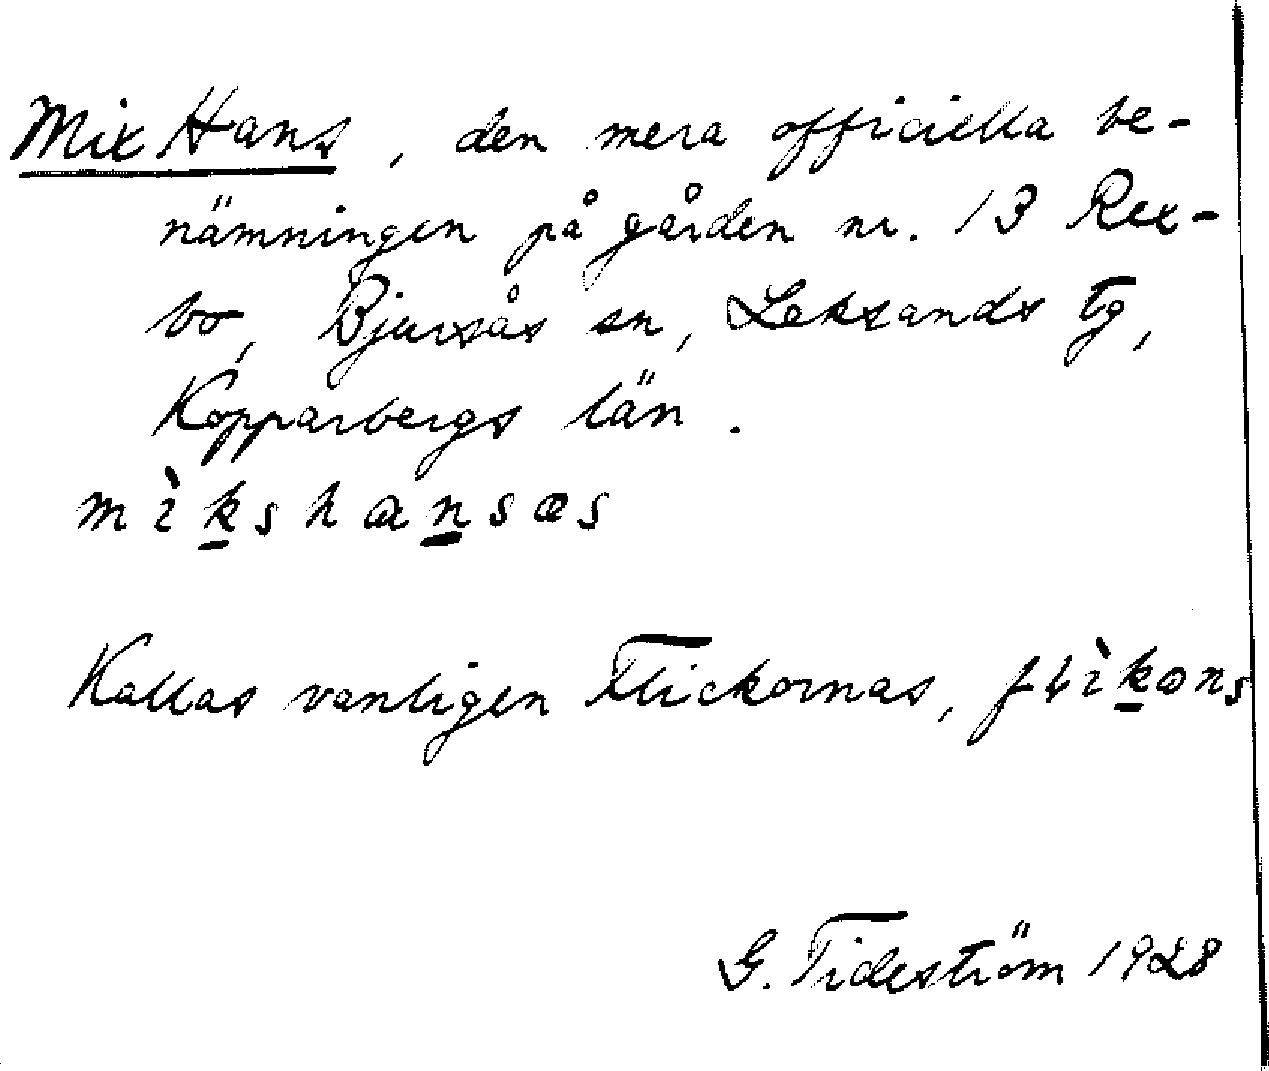 Mix Hans, den mera officiella be-
nämningen på gården nr. 13 Rex-
bo, Bjursås sn, Leksands tg,
Kopparbergs län.
mìkshansæs
Kallas vanligen Flickornas, fłìkons
G. Tideström 1928